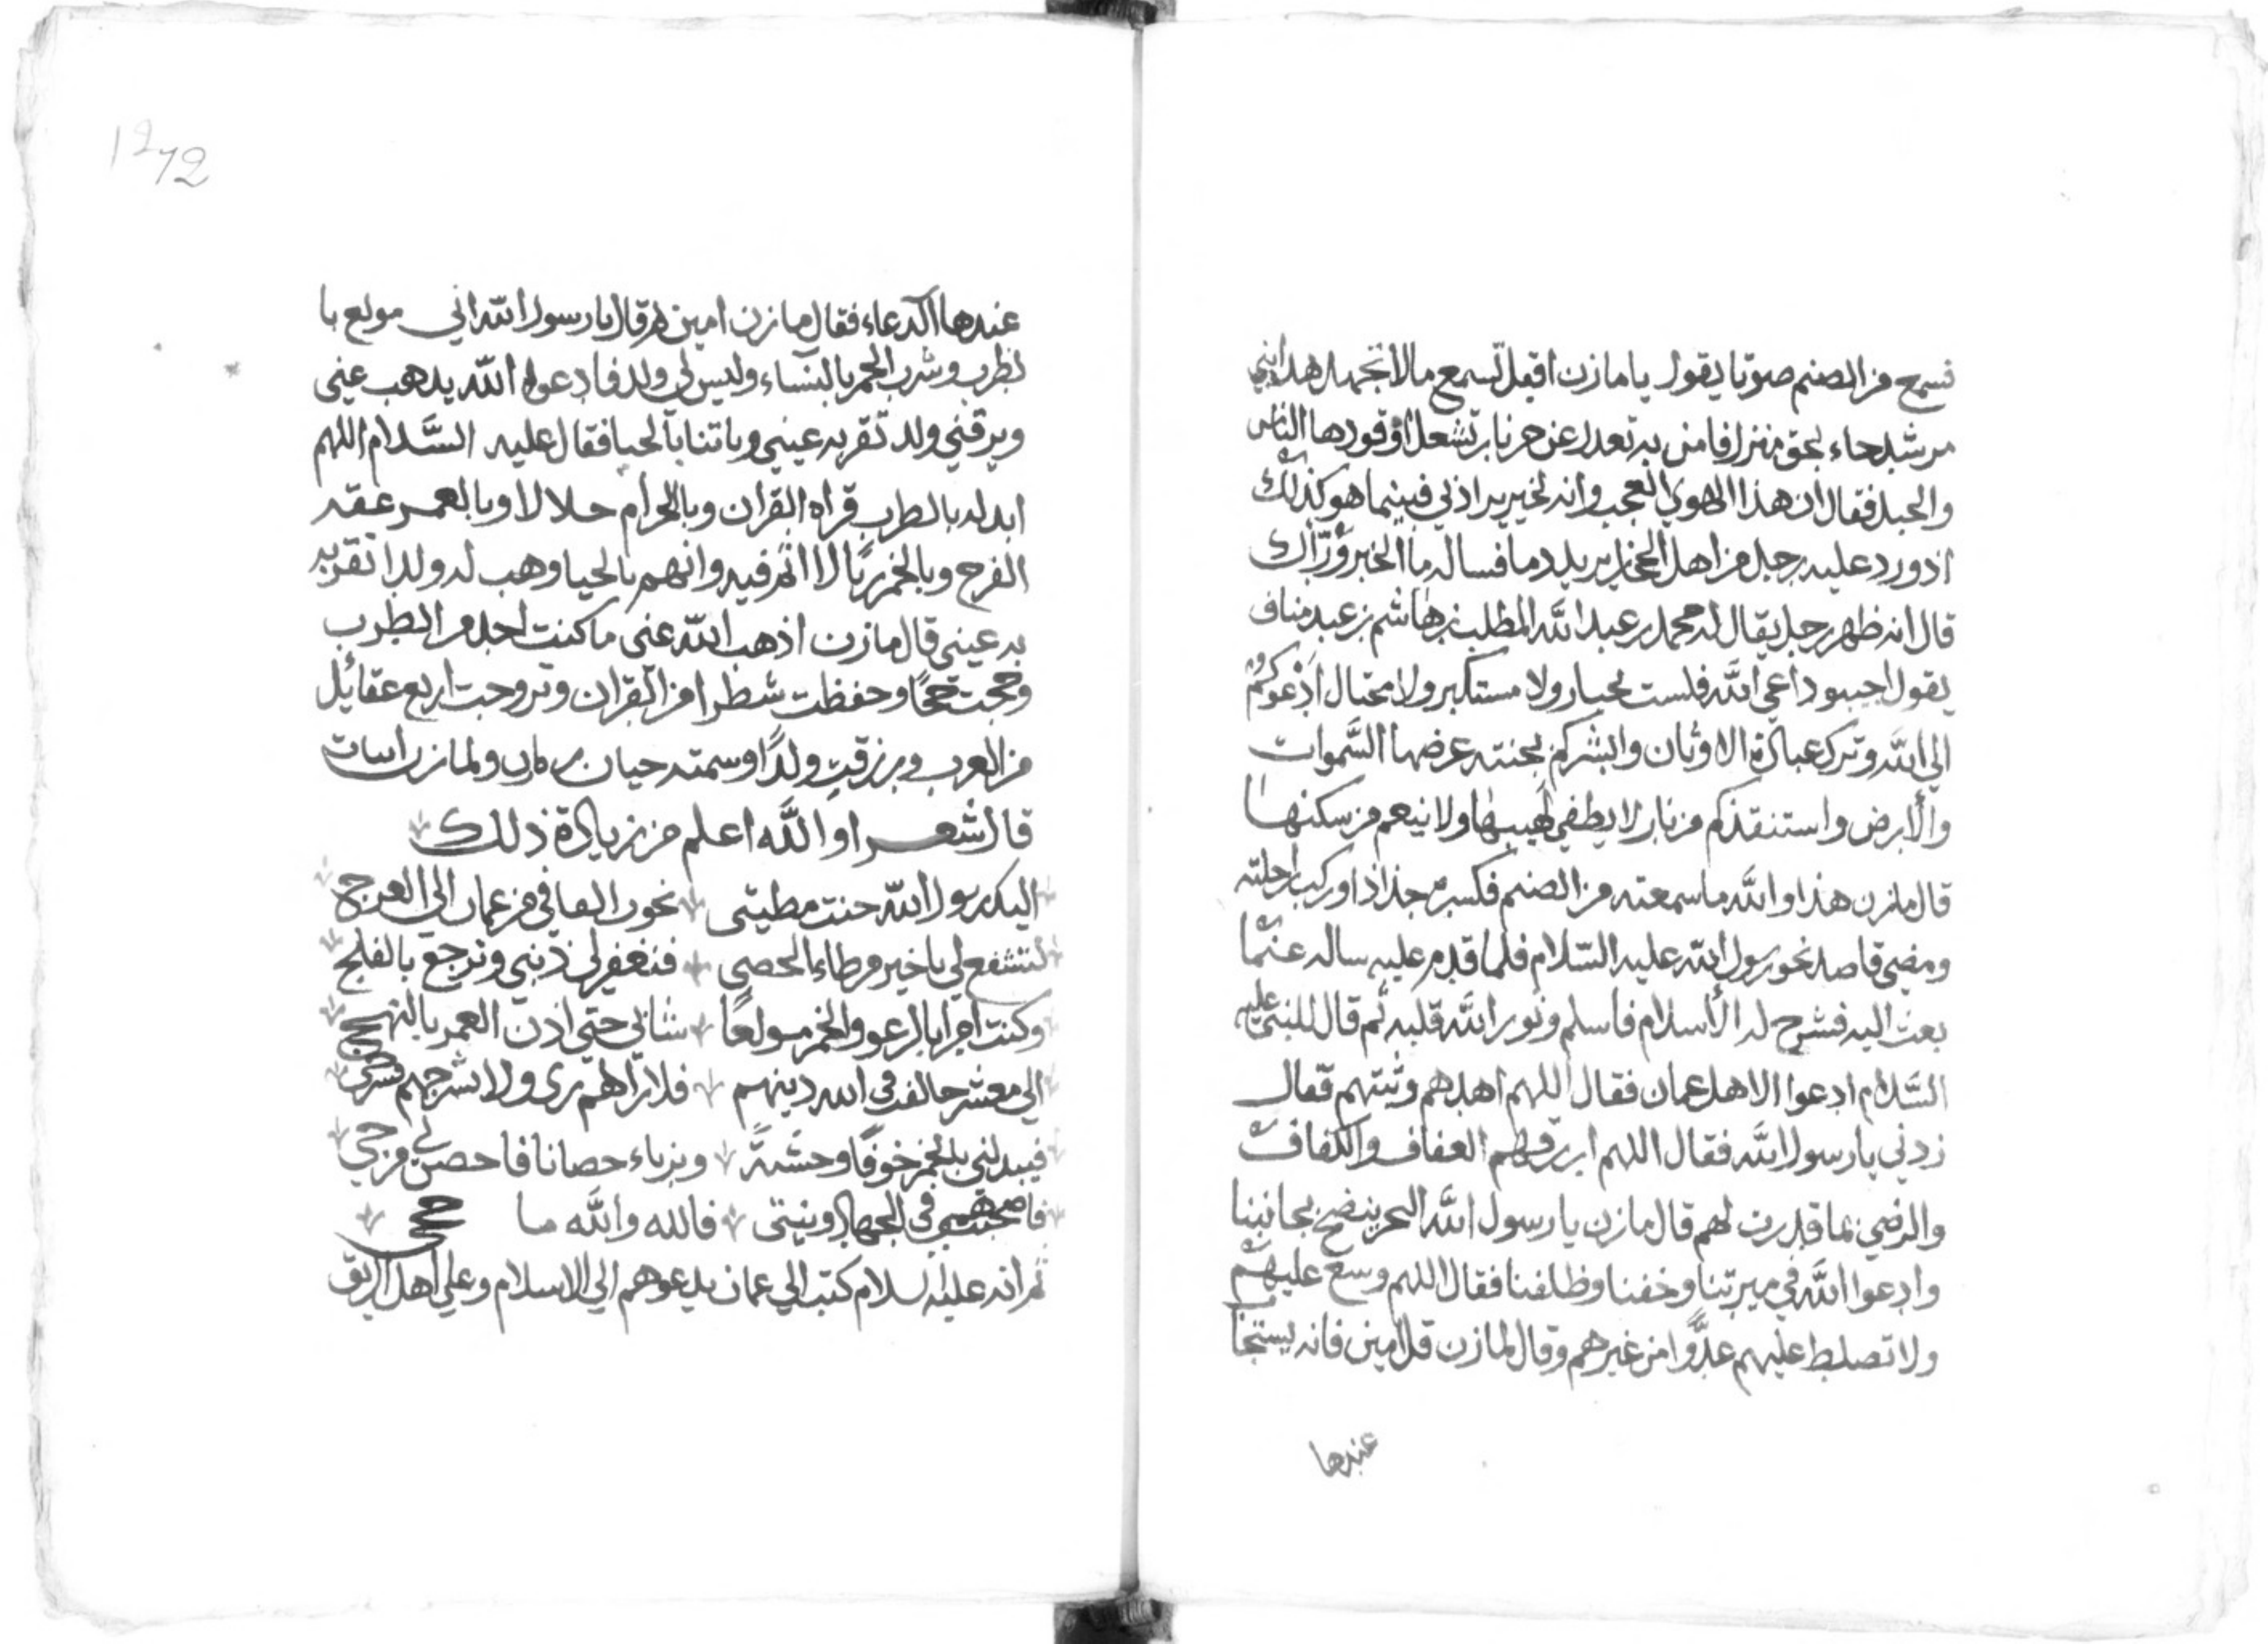 فسمع من الصنم صوتا يقول يا مازن اقبل تسمع مالا تجهل هذا نبي
مرسل جاء بحق منزل فامن به تعدل عن حر نار تشعل وقودها الناس
والجبل فقال ان هذا الهوي العجب وانه لخير يراد لي فبينما هو كذلك
اذ ورد عليه رجل من اهل الحجاز يريد دما فساله ما الخبر وراك
قال انه ظهر رجل يقال له محمد بن عبد الله المطلب بن هاشم بن عبد مناف
يقول اجيبوا داعي الله فلست بجبار ولا مستكبر ولا مختال ادعوكم
الي الله وترك عبادة الاوثان وابشركم بجنته عرضها السموات
والارض واستنقذكم من نار لا يطفي لهيبها ولا ينعم من سكنها
قال مازن هذا والله ما سمعته من الصنم فكسره جذاذا وركب راحلته
ومضي قاصد نحو رسول الله عليه السلام فلما قدم عليه ساله عما
بعث اليه فشرح له الأسلام فاسلم ونور الله قلبه ثم قال للنبي عليه
السلام ادعوا الاهل عمان فقال اللهم اهدهم وثبتهم فقال
زدني يا رسول الله فقال اللهم ارزقهم العفاف والكفاف
والرضي بما قدرت لهم قال مازن يا رسول الله البحر ينضح بجانبنا
وادعوا الله في ميرتنا وخفنا وظلفنا فقال اللهم وسع عليهم
ولا تصلط عليهم عدوا من غيرهم وقال لمازن قل امين فانه يستجا
عندها
1272
عندها الدعاء فقال مازن امين ثم قال يا رسول الله اني مولع با
لطرب وشرب الخمر بالنساء وليس لي ولد فادعوا الله يذهب عني
ويرزقني ولد تقر به عيني وياتنا بالحيا فقال عليه السلام اللهم
ابدله بالطرب قراه القران وبالحرام حلالا وبالعهر عفه
الفرج وبالخمر ريا لا اثم فيه واتهم بالحيا وهب له ولدا تقر به
به عيني قال مازن اذهب الله عني ما كنت اجد من الطرب
وحججت حججا وحفظت شطرا من القران وتزوجت اربع عقائل
من العرب ورزقت ولدا وسمته حيان بن مازن ولمازن ابيات
قال شعرا والله اعلم من زيادة ذلك
اليك رسول الله حنت مطيتي نحوب الفيافي من عمان الي العرج
لتشفع لي يا خير من طاء الحصي فنغفر لي ذنبي ونرجع بالفلج
وكنت امرا بالرعو والخمر مولعا شبابي حتي اذن العمر بالنهج
الي معشر خالفت في الله دينهم فلا راهم ري ولا شرجهم شرجي
فبدلني بالخمر خوفا وخشية وبزناء حصانا فاحصن لي فرجي
فاصبحت همي في الجهاد ونيتي فالله والله ما حجي
ثم انه عليه السلام كتب الي عمان يدعوهم الي الاسلام وعلي اهل الريق